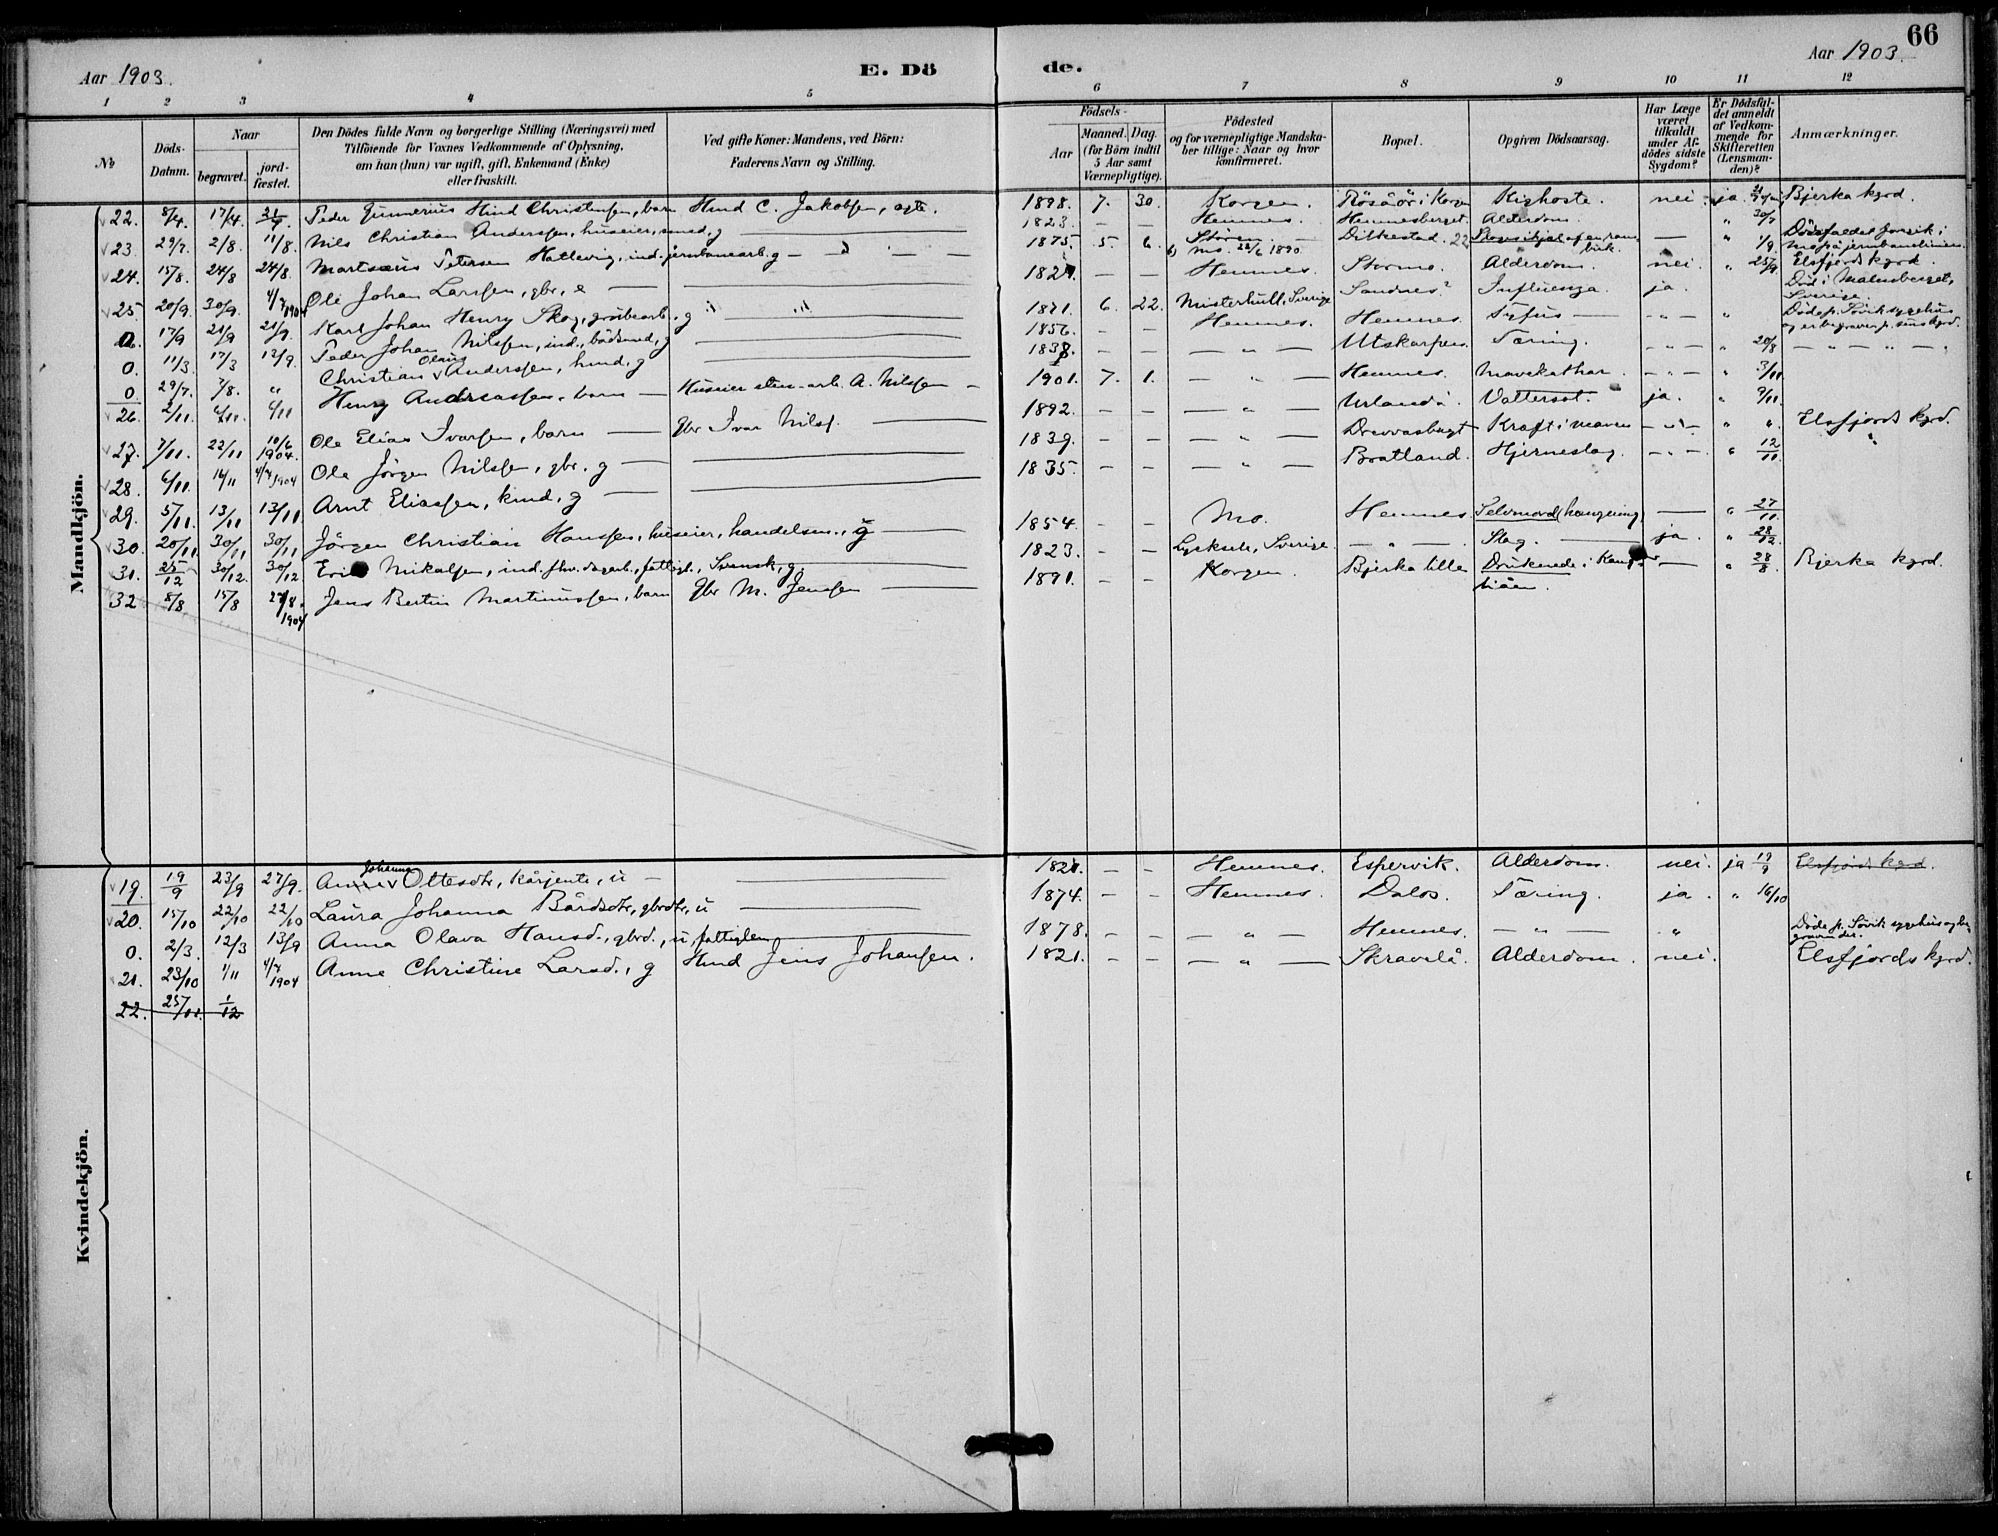 66
Aar 1903.
E. Dö
de.
Aar 1903.
1 2 3 4 5 6 7 8 9 10 11 12
No
Döds-Datum.
Naar
begravet.
jordfæstet.
Den Dödes fulde Navn og borgerlige Stilling (Næringsvei) med
Tilföiende for Voxnes Vedkommende af Oplysning,
om han (hun) var ugift, gift, Enkemand (Enke)
eller fraskilt.
Ved gifte Koner: Mandens, ved Börn:
Faderens Navn og Stilling.
Födsels-
Aar
Maaned. Dag.
(for Börn indtil
5 Aar samt
Værnepligtige).
Födested
og for værnepligtige Mandska-
ber tillige: Naar og hvor
konfirmeret.
Bopæl.
Opgiven Dödsaarsag.
Har Læge
været
tilkaldt
under Af-
dödes sidste
Sygdom?
Er Dödsfal-
det anmeldt
af Vedkom-
mende for
Skifteretten
(Lensman-
den)?
Anmærkninger.
Mandkjön.
22. 8/4. 17/4. Peder Gunnerius Hind Christensen, barn Hmd C. Jakobsen, egte. 1898. 7. 30. Korgen. Rösåör i Korgen Kighoste. nei. ja. Bjerka kgrd.
23. 29/7. 2/8. 11/8. Nils Christian Anderssen, huseier, smed, g 1823. — — Hemnes. Hemnesberget. Alderdom. — " 30/7
24. 15/8. 24/8 24/8. Martinus Petersen Hatlevig, ind. jernbanearb. g 1875. 5. 6. Stören. Mo. 22/6 1890. Dilkestad. — " 1/9. Dödsfaldet foregik i
25. 20/9. 30/9. 4/7 1904 Ole Johan Larssen, gbr, e 1821. — — Hemnes. Stormo. Alderdom. nei. " 25/9. Elsfjords kgrd.
0. 17/6 21/9 21/9. Karl Johan Henry Skog, grubearb. g 1871. 6. 22. Misterhult, Sverige Sandnes? Influenza. ja. Död i Malmberget, Sverige.
0. 11/3. 17/3 12/9. Peder Johan Nilssen, ind., bådsmd, g 1856. — — Hemnes. Hemnes. Tyfus — — " — " Döde p. Sövik sygehus
og er begraven p. sms kgrd.
0. 29/7. 7/8. " Christian Olaus Anderssen, hmd, g 1838. — — — " — Utskarpen. Tæring. — " — " 20/8 — " — " — "
26. 2/11. 6/11. 6/11 Henry Andreassen, barn — Huseier sten-arb. A. Nilssen — 1901. 7. 1. — " — Hemnes. Mavekathar. — " — " 3/11.
27. 7/11. 22/11 10/6 1904. Ole Elias Ivarssen, barn — Gbr Ivar Nilss. 1892. — — — " — Urlandå. Vattersot. ja. " 9/11. Elsfjords kgrd.
28. 6/11. 16/11 4/7 1904 Ole Jörgen Nilssen, gbr, g — 1839. — — — " — Drevvasbugt Kræft i maven — " — " " "
29. 5/11. 13/11 13/11 Arnt Eliassen, kmd, g — 1835. — — — " — Bratland. Hjerneslag. — " — " 12/11.
30. 20/11. 30/11 30/11 Jörgen Christian Hanssen, huseier, handelsm., g — 1854. — — Mo. Hemnes Selvmord (hængning) — " 27/11.
31. 25/12 30/12. 30/12 Erik Mikalsen, ind. fhv. dagarb., fattigl., Svensk, g. 1823. — — Lycksele, Sverige. — " — Slag. — ja. " 28/12
32 8/8 15/8 27/8. 1904 Jens Bertin Martinussen, barn Gbr M. Jenssen — 1891. — — Korgen. Bjerka lille Druknede i — " 28/8. Bjerka kgrd.
Kvindekjön.
19. 19/9 23/9 27/9. Anne Johanna Ottesdtr, kårjente, u — 1821. — — Hemnes. Espervik. Alderdom. nei. ja 19/9 Elsfjords kgrd.
20. 15/10 22/10 22/10 Laura Johanna Bårdsdtr, gbrdtr, u — 1874. — — Hemnes. Dalos. Tæring. ja. " 16/10
0. 2/3. 12/3 13/9 Anna Olava Hansd., gbrd., u, fattiglem — 1878. — — — " — Hemnes. — " — " Döde p. Sövik sygehus og be-
graven der.
21. 23/10 1/11 4/7 1904 Anne Christine Larsd., g Hmd Jens Johansen. 1821. — — — " — Skravlå. Alderdom. nei. Elsfjords kgrd.
22. 25/11. 1/12